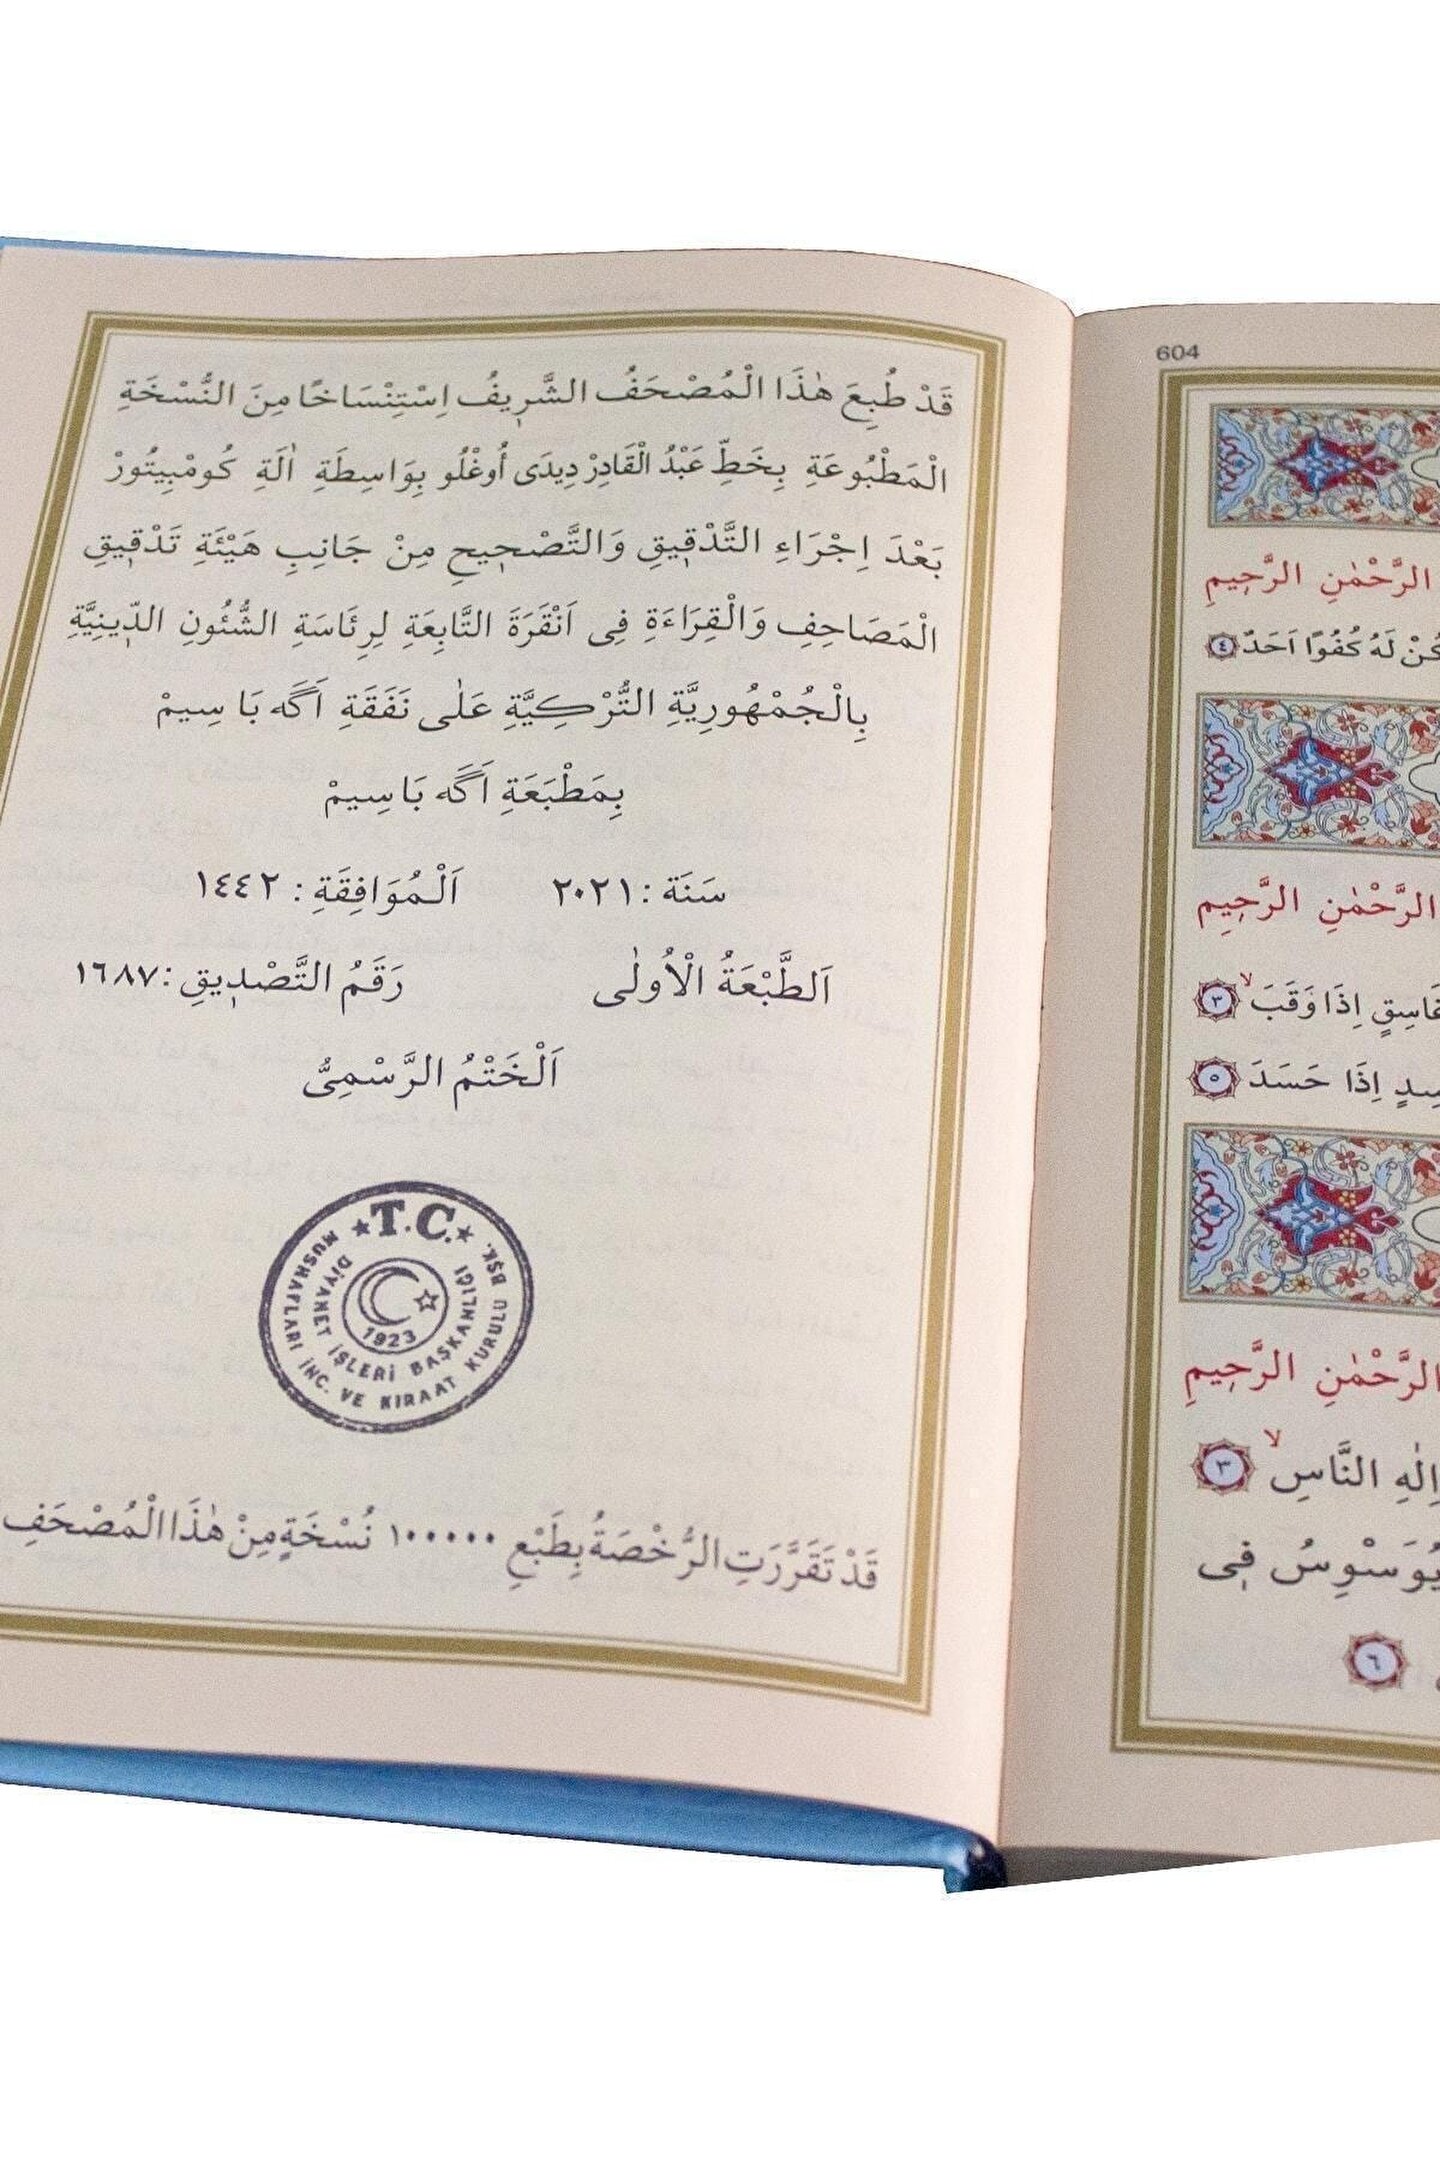 قَدْ طُبِعَ هٰذَا الْمُصْحَفُ الشَّرِيفُ اِسْتِنْسَاخًا مِنَ النُّسْخَةِ
الْمَطْبُوعَةِ بِخَطِّ عَبْدُ الْقَادِرْ دِيدَى اُوغْلُو بِوَاسِطَةِ اٰلَةِ كُومْبِيتُورْ
بَعْدَ اِجْرَاءِ التَّدْقِيقِ وَالتَّصْحِيحِ مِنْ جَانِبِ هَيْئَةِ تَدْقِيقِ
الْمَصَاحِفِ وَالْقِرَاءَةِ فِى اَنْقَرَةَ التَّابِعَةِ لِرِئَاسَةِ الشُّئُونِ الدِّينِيَّةِ
بِالْجُمْهُورِيَّةِ التُّرْكِيَّةِ عَلٰى نَفَقَةِ اَگَه بَاسِيمْ
بِمَطْبَعَةِ اَگَه بَاسِيمْ
سَنَة : ٢٠٢١ اَلْمُوَافِقَةِ : ١٤٤٢
اَلطَّبْعَةُ الْاُولٰى رَقَمُ التَّصْدِيقِ : ١٦٨٧
اَلْخَتْمُ الرَّسْمِىُّ
T.C.
MUSHAFLARI İNC. VE KIRAAT KURULU BŞK.
DİYANET İŞLERİ BAŞKANLIĞI
1923
قَدْ تَقَرَّرَتِ الرُّخْصَةُ بِطَبْعِ ١٠٠٠٠٠ نُسْخَةٍ مِنْ هٰذَا الْمُصْحَفِ
604
الرَّحْمٰنِ الرَّحِيمِ
لَهُ كُفُوًا اَحَدٌ ٤
الرَّحْمٰنِ الرَّحِيمِ
اِذَا وَقَبَ ٣
اِذَا حَسَدَ ٥
الرَّحْمٰنِ الرَّحِيمِ
اِلٰهِ النَّاسِ ٣
يُوَسْوِسُ فِى
٦